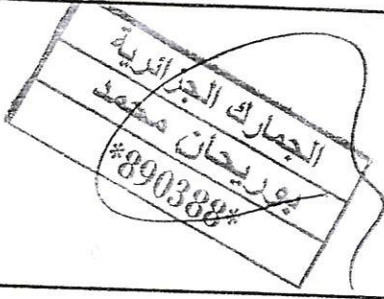 الجمارك الجزائرية
بوريحان محمد
*890388*